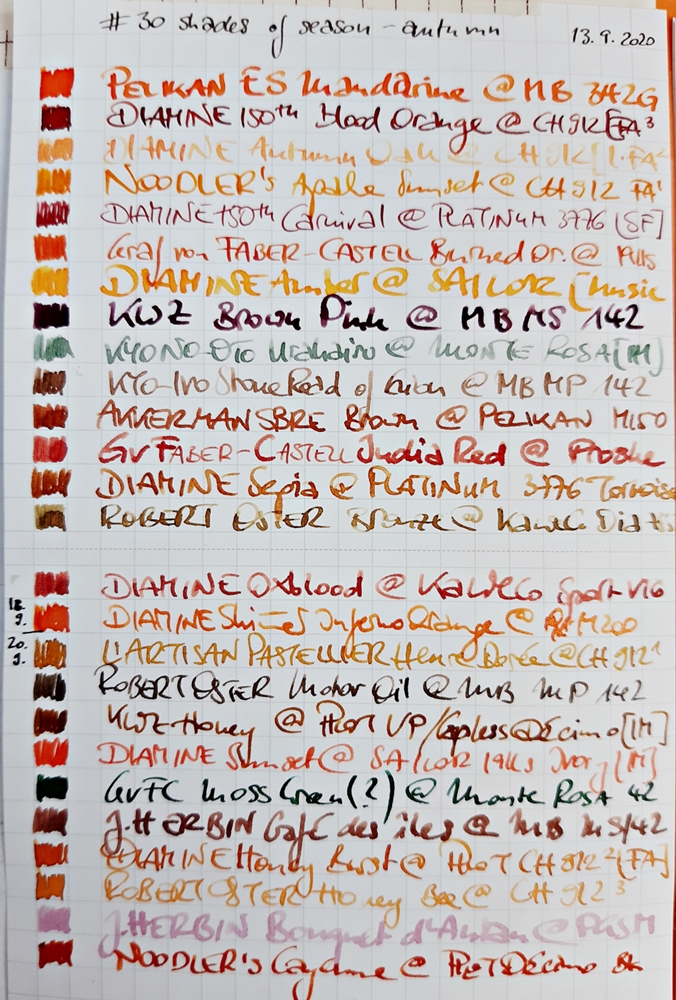 # 30 shades of season - autumn 13.9.2020
PELIKAN ES Mandarine @ MB 342G
DIAMINE 150th Blood Orange @ CH 912 [FA³
DIAMINE Autumn Oak @ CH 912 [1. FA²
NOODLER'S Apache Sunset @ CH 912 FA¹
DIAMINE 150th Carnival @ PLATINUM 3776 [SF]
Graf von FABER-CASTELL Burned Or. @
DIAMINE Amber @ SAILOR [Music
KWZ Brown Pink @ MB MS 142
KYO NO OTO @ MONTE ROSA [M]
KYO-Ino Stone Road of Gion @ MB MP 142
AKKERMAN SBRE Brown @ PELIKAN M150
GvFABER-CASTELL India Red @
DIAMINE Sepia @ PLATINUM 3776 Tortoise
ROBERT OSTER Bronze @ Kaweco Dia
DIAMINE Oxblood @ KAWECO Sport V16
18.9. DIAMINE Inferno Orange @ M200
20.9. L'ARTISAN PASTELLIER Heure Dorée @ CH 912¹
ROBERT OSTER Motor Oil @ MB MP 142
KWZ Honey @ PILOT VP/Capless Décimo [M]
DIAMINE Sunset @ SAILOR Ivory [M]
GvFC Moss Green (?) @ Monte Rosa 42
J.HERBIN Café des îles @ MB MS/42
DIAMINE Honey Burst @ PILOT CH 912² [FA]
ROBERT OSTER Honey Bee @ CH 912³
J.HERBIN Bouquet d'Antan @
NOODLER'S Cayenne @ PILOT Décimo